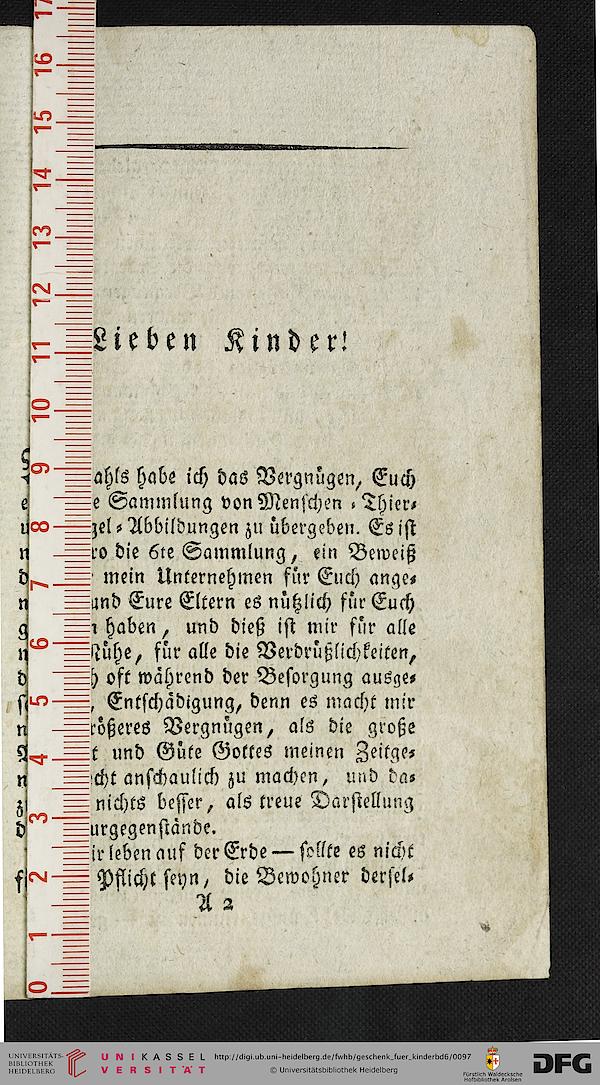 Lieben Kinder!
ahls habe ich das Vergnügen, Euch
e Sammlung von Menschen ⸗ Thier⸗
gel ⸗ Abbildungen zu übergeben. Es ist
ro die 6te Sammlung, ein Beweiß
mein Unternehmen für Euch ange⸗
und Eure Eltern es nützlich für Euch
n haben, und dieß ist mir für alle
Mühe, für alle die Verdrüßlichkeiten,
h oft während der Besorgung ausge⸗
, Entschädigung, denn es macht mir
rößeres Vergnügen, als die große
t und Güte Gottes meinen Zeitge⸗
cht anschaulich zu machen, und da⸗
nichts besser, als treue Darstellung
urgegenstände.
ir leben auf der Erde — sollte es nicht
Pflicht seyn, die Bewohner dersel⸗
A 2
17
16
15
14
13
12
11
10
9
8
7
6
5
4
3
2
1
0
UNIVERSITÄTS-
BIBLIOTHEK
HEIDELBERG
UNIKASSEL
VERSITÄT
http://digi.ub.uni-heidelberg.de/fwhb/geschenk_fuer_kinderbd6/0097
© Universitätsbibliothek Heidelberg
Fürstlich Waldecksche
Hofbibliothek Arolsen
DFG